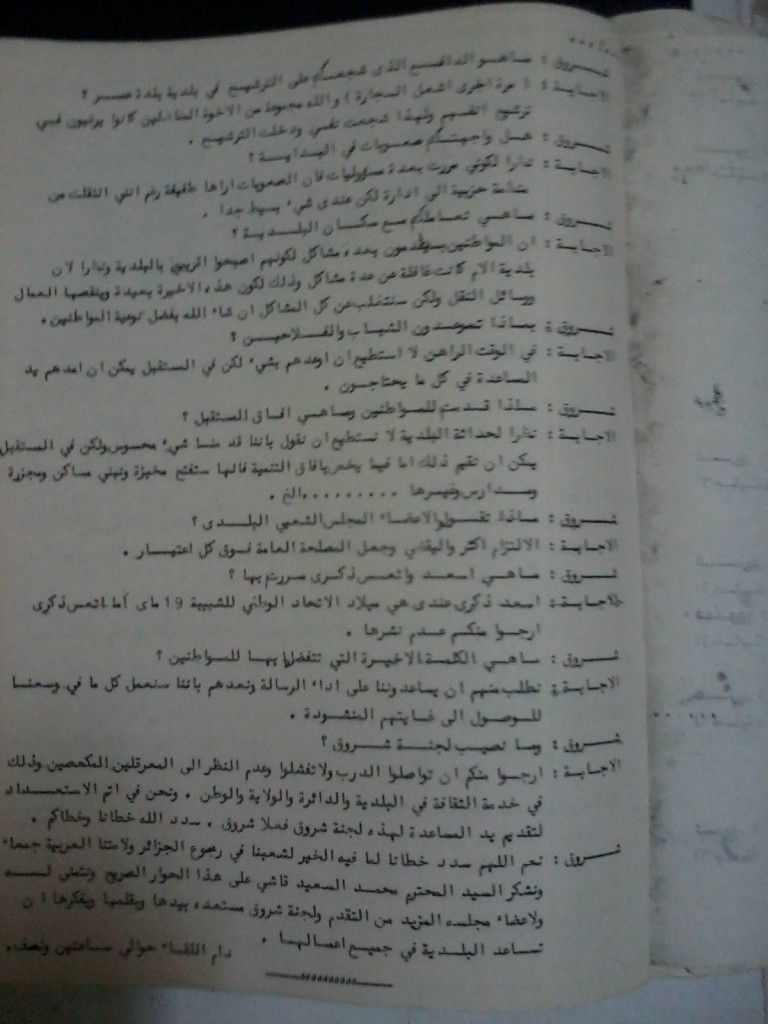 شروق : ما هو الدافع الذي شجعكم على الترشيح في بلدية بلدة عمر ؟
الاجابة : ( مرة اخرى اشعل السجارة ) والله مجموعة من الاخوة المناضلين كانوا يريدون مني
ترشيح انفسهم ولهذا شجعت نفسي ودخلت الترشيح .
شروق : هل واجهتكم صعوبات في البداية ؟
الاجابة : نذارا لكوني مررت بعدة مسؤوليات فان الصعوبات اراها طفيفة رغم انني انتقلت من
حزبية الى ادارة لكن عندي شيء بسيط جدا .
شروق : ما هي تعاملكم مع سكان البلدية ؟
الاجابة : ان المواطنين يتقدمون بعدة مشاكل لكونهم اصبحوا قريبين بالبلدية ونذارا لان
بلدية الام كانت غافلة عن عدة مشاكل وذلك لكون هذه الاخيرة بعيدة وينقصها العمال
ووسائل النقل ولكن سنتغلب عن كل المشاكل ان شاء الله بفضل توعية المواطنين .
شروق : بماذا توعدون الشباب والفلاحين ؟
الاجابة : في الوقت الراهن لا استطيع ان اوعدهم بشيء لكن في المستقبل يمكن ان امدهم يد
المساعدة في كل ما يحتاجون .
شروق : ماذا قدمتم للمواطنين وما هي افاق المستقبل ؟
الاجابة : نذارا لحداثة البلدية لا نستطيع ان نقول باننا قد منا شيء محسوس ولكن في المستقبل
يمكن ان نقيم ذلك اما فيما يخص بافاق التنمية فانها ستفتح مخبزة ونبني مساكن ومجزرة
ومدارس وغيرها .......... الخ .
شروق : ماذا تقولوا لاعضاء المجلس الشعبي البلدي ؟
الاجابة : الالتزام اكثر واليقاني وجعل المصلحة العامة فوق كل اعتبار .
شروق : ما هي اسعد واتعس ذكرى مررتم بها ؟
الاجابة : اسعد ذكرى عندي هي ميلاد الاتحاد الوطني للشبيبة 19 ماي أما اتعس ذكرى
ارجوا منكم عدم نشرها .
شروق : ما هي الكلمة الاخيرة التي تتفضلوا بها للمواطنين ؟
الاجابة : نطلب منهم ان يساعدوننا على اداء الرسالة ونعدهم باننا سنعمل كل ما في وسعنا
للوصول الى غايتهم المنشودة .
شروق : وما نصيب لجنة شروق ؟
الاجابة : ارجوا منكم ان تواصلوا الدرب ولا تفشلوا وعدم النظر الى المعرقلين وذلك
في خدمة الثقافة في البلدية والدائرة والولاية والوطن . ونحن في اتم الاستعداد
لتقديم يد المساعدة لهذه لجنة شروق فعلا شروق . سدد الله خطانا وخطاكم .
شروق : نعم اللهم سدد خطانا لما فيه الخير لشعبنا في ربوع الجزائر ولامتنا العربية جمعاء
ونشكر السيد المحترم محمد السعيد قاشي على هذا الحوار الصريح ونتمنى لـه
ولاعضاء مجلسه المزيد من التقدم ولجنة شروق مستعدة بيدها وبقلمها وبفكرها ان
تساعد البلدية في جميع اعمالها .
دام اللقاء حوالي ساعتين ونصف .